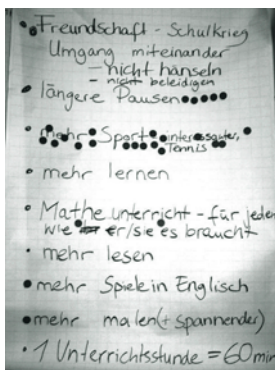 Freundschaft - Schulkrieg
Umgang miteinander
- nicht hänseln
- nicht beleidigen
längere Pausen
mehr Sport interessanter,
Tennis
mehr lernen
Matheunterricht - für jeden
wie er/sie es braucht
mehr lesen
mehr Spiele in Englisch
mehr malen (+ spannender)
1 Unterrichtsstunde = 60 min